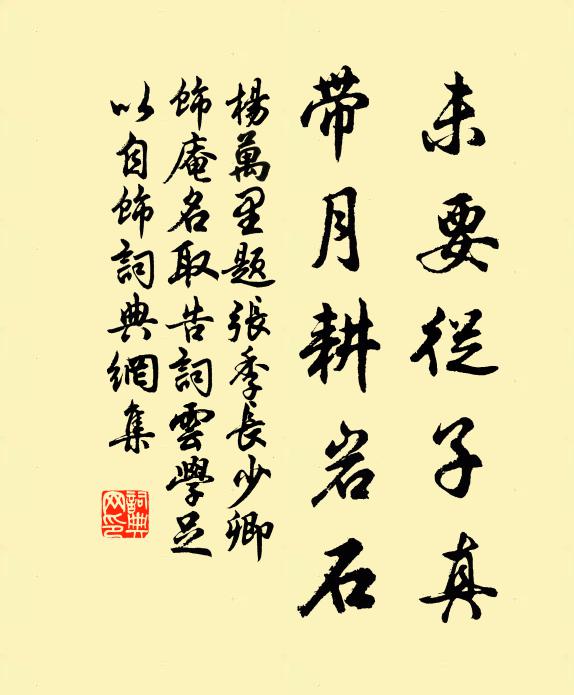 未要從子真
帶月耕岩石
楊萬里題張季長少卿
飾庵名取告詞雲學足
以自飾詞典網集
詞典网印